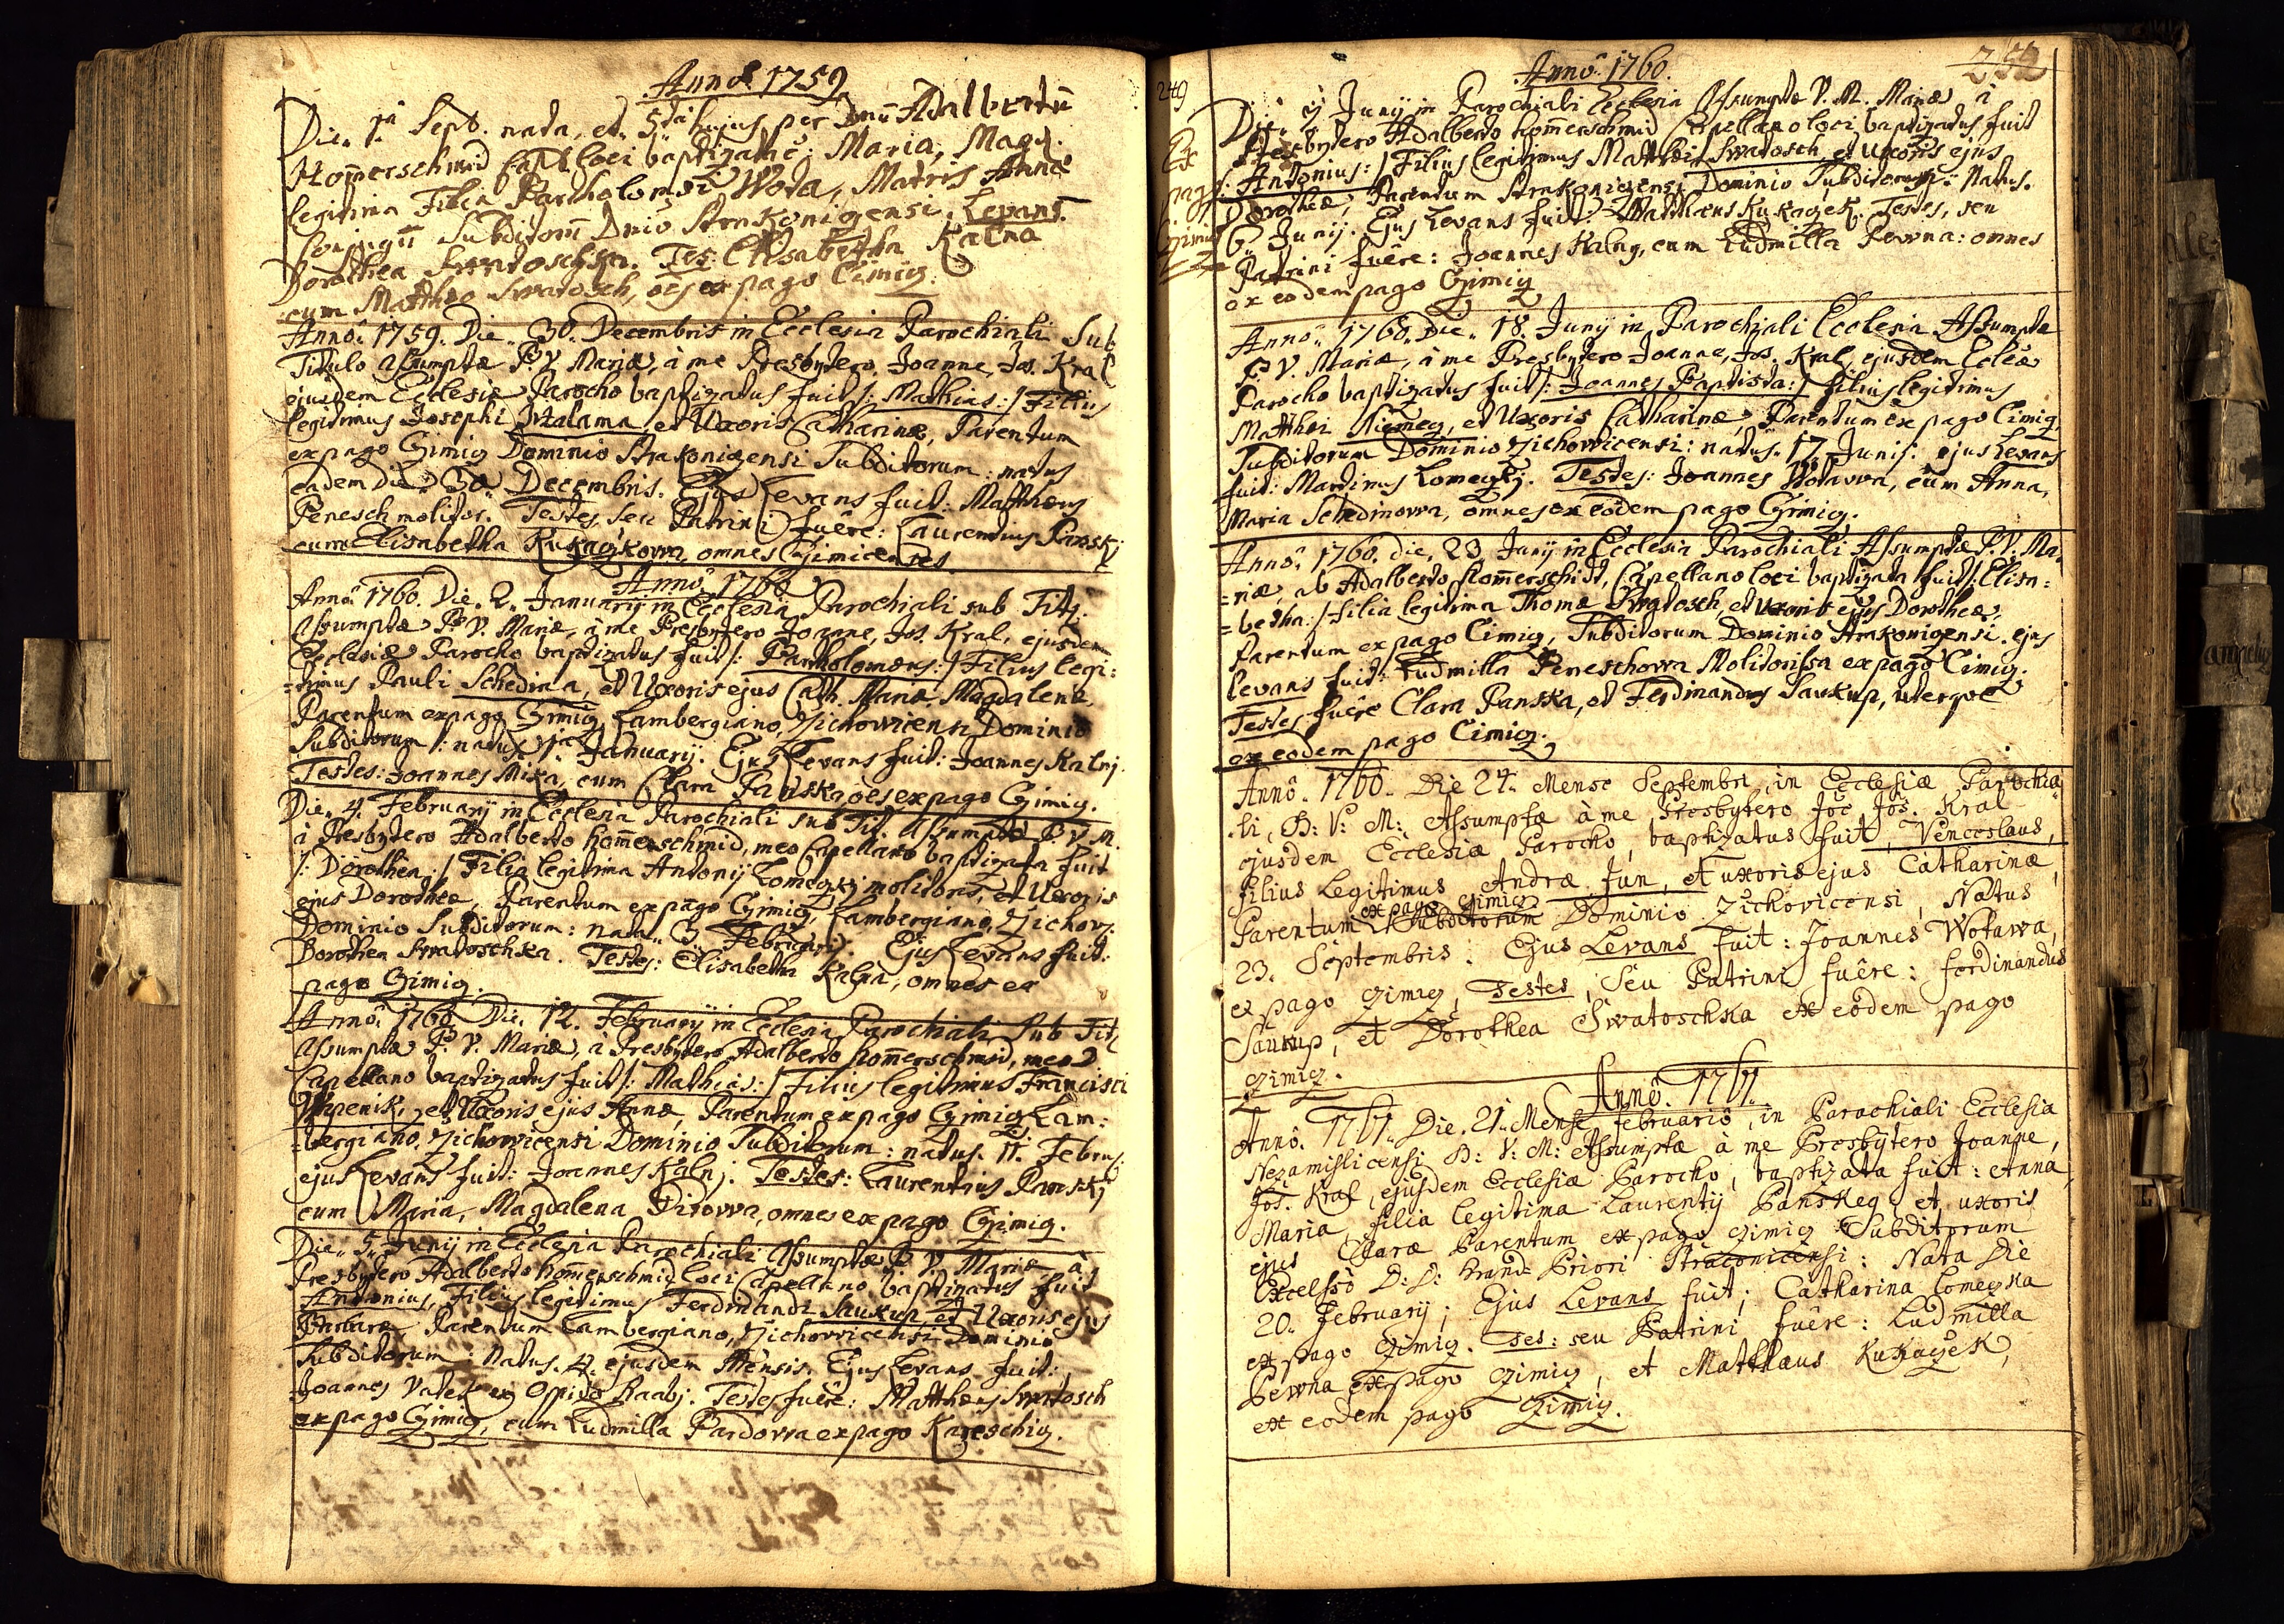 Annô 1759
Die 1ma Sept. nata, et 5ta hujus per Dnū Adalbertū
Hom̄erschmid Capl. loci baptizata: Maria, Magd.
legitima Filia Bartholomæi Wota, Matris Annæ
Conjugū Subditorū Dnio Strakonigensi. Levans
Dorothea Swatoschka. Tes: Elisabetha Kalna
cum Matthæo Swatosch, oēs ex pago Cimiz.
Annô 1759. Die 30. Decembris in Ecclesia Parochiali Sub
Titulo Assumptæ B. V. Mariæ, à me Presbytero Joanne, Jos. Kral
ejusdem Ecclesiæ Parocho baptizatus fuit /: Mathias :/ Filius
legitimus Josephi Skalama, et Uxoris Catharinæ, Parentum
ex pago Czimiz Dominio Strakonigensi Subditorum: natus
eadem die 30. Decembris. Ejus Levans fuit: Matthæus
Penesch molitor. Testes, seu Patrini fuêre: Laurentius Pansky
cum Elisabetha Kukaczkowa, omnes Czimicenses.
Annô 1760
Annô 1760. Die 2. Januarij in Ecclesia Parochiali sub Tit.
Assumptæ B. V. Mariæ, à me Presbytero Joanne, Jos. Kral, ejusdem
Ecclesiæ Parocho baptizatus fuit /: Bartholomæus :/ Filius legi:
=timus Pauli Schedina, et Uxoris ejus Cath. Mariæ Magdalenæ,
Parentum ex pago Czimiz Lambergiano, Zichowicensi Dominio
Subditorum /: natus 1ma Januarij. Ejus Levans fuit: Joannes Kalnj.
Testes: Joannes Mika, cum Clara Panska oēs ex pago Czimiz.
Die 4. Februarij in Ecclesia Parochiali sub Tit. Assumptæ B. V. M.
à Presbytero Adalberto Hom̄erschmid, meo Capellano baptizata fuit
/: Dorothea :/ Filia legitima Antonij Lomeczkj molitoris, et Uxoris
ejus Dorotheæ, Parentum ex pago Czimiz, Lambergiano, Zichow.
Dominio Subditorum: nata 3. Februarij. Ejus Levans fuit:
Dorothea Swatoschka. Testes: Elisabetha Kalna, omnes ex
pago Czimiz.
Annô 1760. Die 12. Februarij in Ecclesia Parochiali Sub Tit.
Assumptæ B. V. Mariæ, à Presbytero Adalberto Hom̄erschmid, meo
Capellano baptizatus fuit /: Mathias :/ Filius legitimus Francisci
et Uxoris ejus Annæ, Parentum ex pago Czimiz Lam:
=bergiano, Zichowicensi Dominio Subditorum: natus 11. Febru.
ejus Levans fuit: Joannes Kalnj. Testes: Laurentius Panskj
cum Maria, Magdalena omnes ex pago Czimiz.
Die 5. Junij in Ecclesia Parochiali Assumptæ B. V. Mariæ à
Presbytero Adalberto Hom̄erschmid loci Capellano baptizatus fuit
Antonius, Filius legitimus Ferdinandi Saukup, et Uxoris ejus
Barbaræ Parentum Lambergiano, Zichowicensi Dominio
Subditorum: Natus 4. ejusdem Mensis. Ejus Levans fuit:
Joannes Valek ex Oppido Raabj. Testes fuêre: Matthæus Swatosch
ex pago Czimiz, cum Ludmilla Pardowa ex pago Kazeschiz.
249
252
Annô 1760.
Ex
pago
Czimiz
Die 9 Junij in Parochiali Ecclesia Assumptæ V. M. Mariæ à
Presbytero Adalberto Hom̄erschmid Capellano loci baptizatus fuit
/: Antonius :/ Filius legitimus Matthæi Swatosch, et Uxoris ejus
Dorotheæ, Parentum Strakonizensi Dominio Subditorum: Natus.
6. Junij. Ejus Levans fuit Matthæus Kukaczek. Testes, seu
Patrini fuêre: Joannes Kalny, cum Ludmilla Pewna: omnes
ex eodem pago Czimiz
Annô 1760. Die 18. Junij in Parochiali Ecclesia Assumptæ
B. V. Mariæ, à me Presbytero Joanne, Jos. Kral, ejusdem Ecclēæ
Parocho baptizatus fuit /: Joannes Baptista :/ filius legitimus
Matthæi Niemecz, et Uxoris Catharinæ, Parentum ex pago Cimiz,
Subditorum Dominio Zichowicensi: natus. 17. Junij: ejus Levans
fuit: Martinus Lomeczkj. Testes: Joannes Wotawa, cum Anna,
Maria Schedinowa, omnes ex eodem pago Czimiz.
Annô 1760. die. 23. Junij in Ecclesia Parochiali Assumptæ B. V. Ma:
=riæ, ab Adalberto Hom̄erschidt, Capellano loci baptizata fuit /: Elisa:
=betha :/ filia legitima Thomæ Swatosch, et Uxoris ejus Dorotheæ,
Parentum ex pago Cimiz, Subditorum Dominio Strakonigensi. ejus
levans fuit: Ludmilla Peneschowa Molitorissa ex pago Cimiz.
Testes fuêre Clara Panska, et Ferdinandus Saukup, uterque
ex eodem pago Cimiz.
Annô 1760. Die 24. Mense Septembri in Ecclesiæ Parochia
li, B: V: M: Assumptæ à me Presbytero Joē Jos. Kral
ejusdem Ecclesiæ Parocho, baptizatus fuit, Venceslaus,
filius Legitimus Andræ Jun, et uxoris ejus Catharinæ,
ex pago Czimiz
Parentum Subditorum Dominio Zichovicensi, Natus
23. Septembris: Ejus Levans fuit: Joannes Wotawa,
ex pago Czimiz, Testes, seu Patrini fuêre: ferdinandus
Saukup, et Dorothea Swatoschka ex eodem pago
Czimiz.
Annô 1761.
Annô 1761. Die. 21. Mense februariô, in Parochiali Ecclesia
Nezamislicensi B: V: M: Assumptæ à me Presbytero Joanne,
Jos. Kral, ejusdem Ecclesiæ Parocho, baptizata fuit: Anna,
Maria, filia legitima Laurentij Panskeg et uxoris
ejus Claræ Parentum ex pago Czimiz Subditorum
Excelsso D: D: Grand Priori Straconicensi: Nata Die
20. februarij; Ejus Levans fuit; Catharina Lomeczka
ex pago Czimiz. Tes: seu Patrini fuêre: Ludmilla
Pewna ex pago Czimiz, et Matthæus Kukaczek,
ex eodem pago Czimiz.